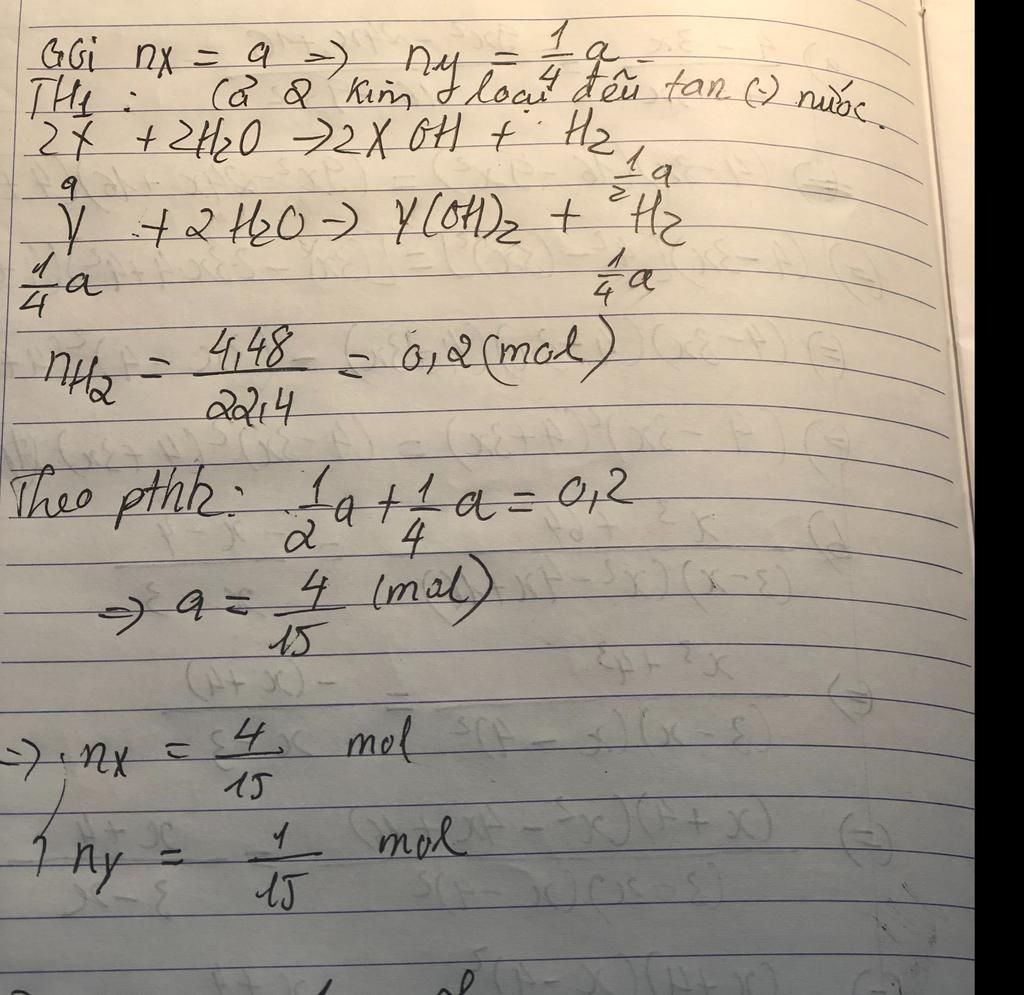 Gọi nx = a => ny = 1/4 a
TH1 : Cả 2 kim loại đều tan (-) nước.
2X + 2H2O -> 2XOH + H2
a 1/2 a
Y + 2H2O -> Y(OH)2 + H2
1/4 a 1/4 a
nH2 = 4,48/22,4 = 0,2 (mol)
Theo pthh: 1/2 a + 1/4 a = 0,2
=> a = 4/15 (mol)
=> nx = 4/15 mol
ny = 1/15 mol